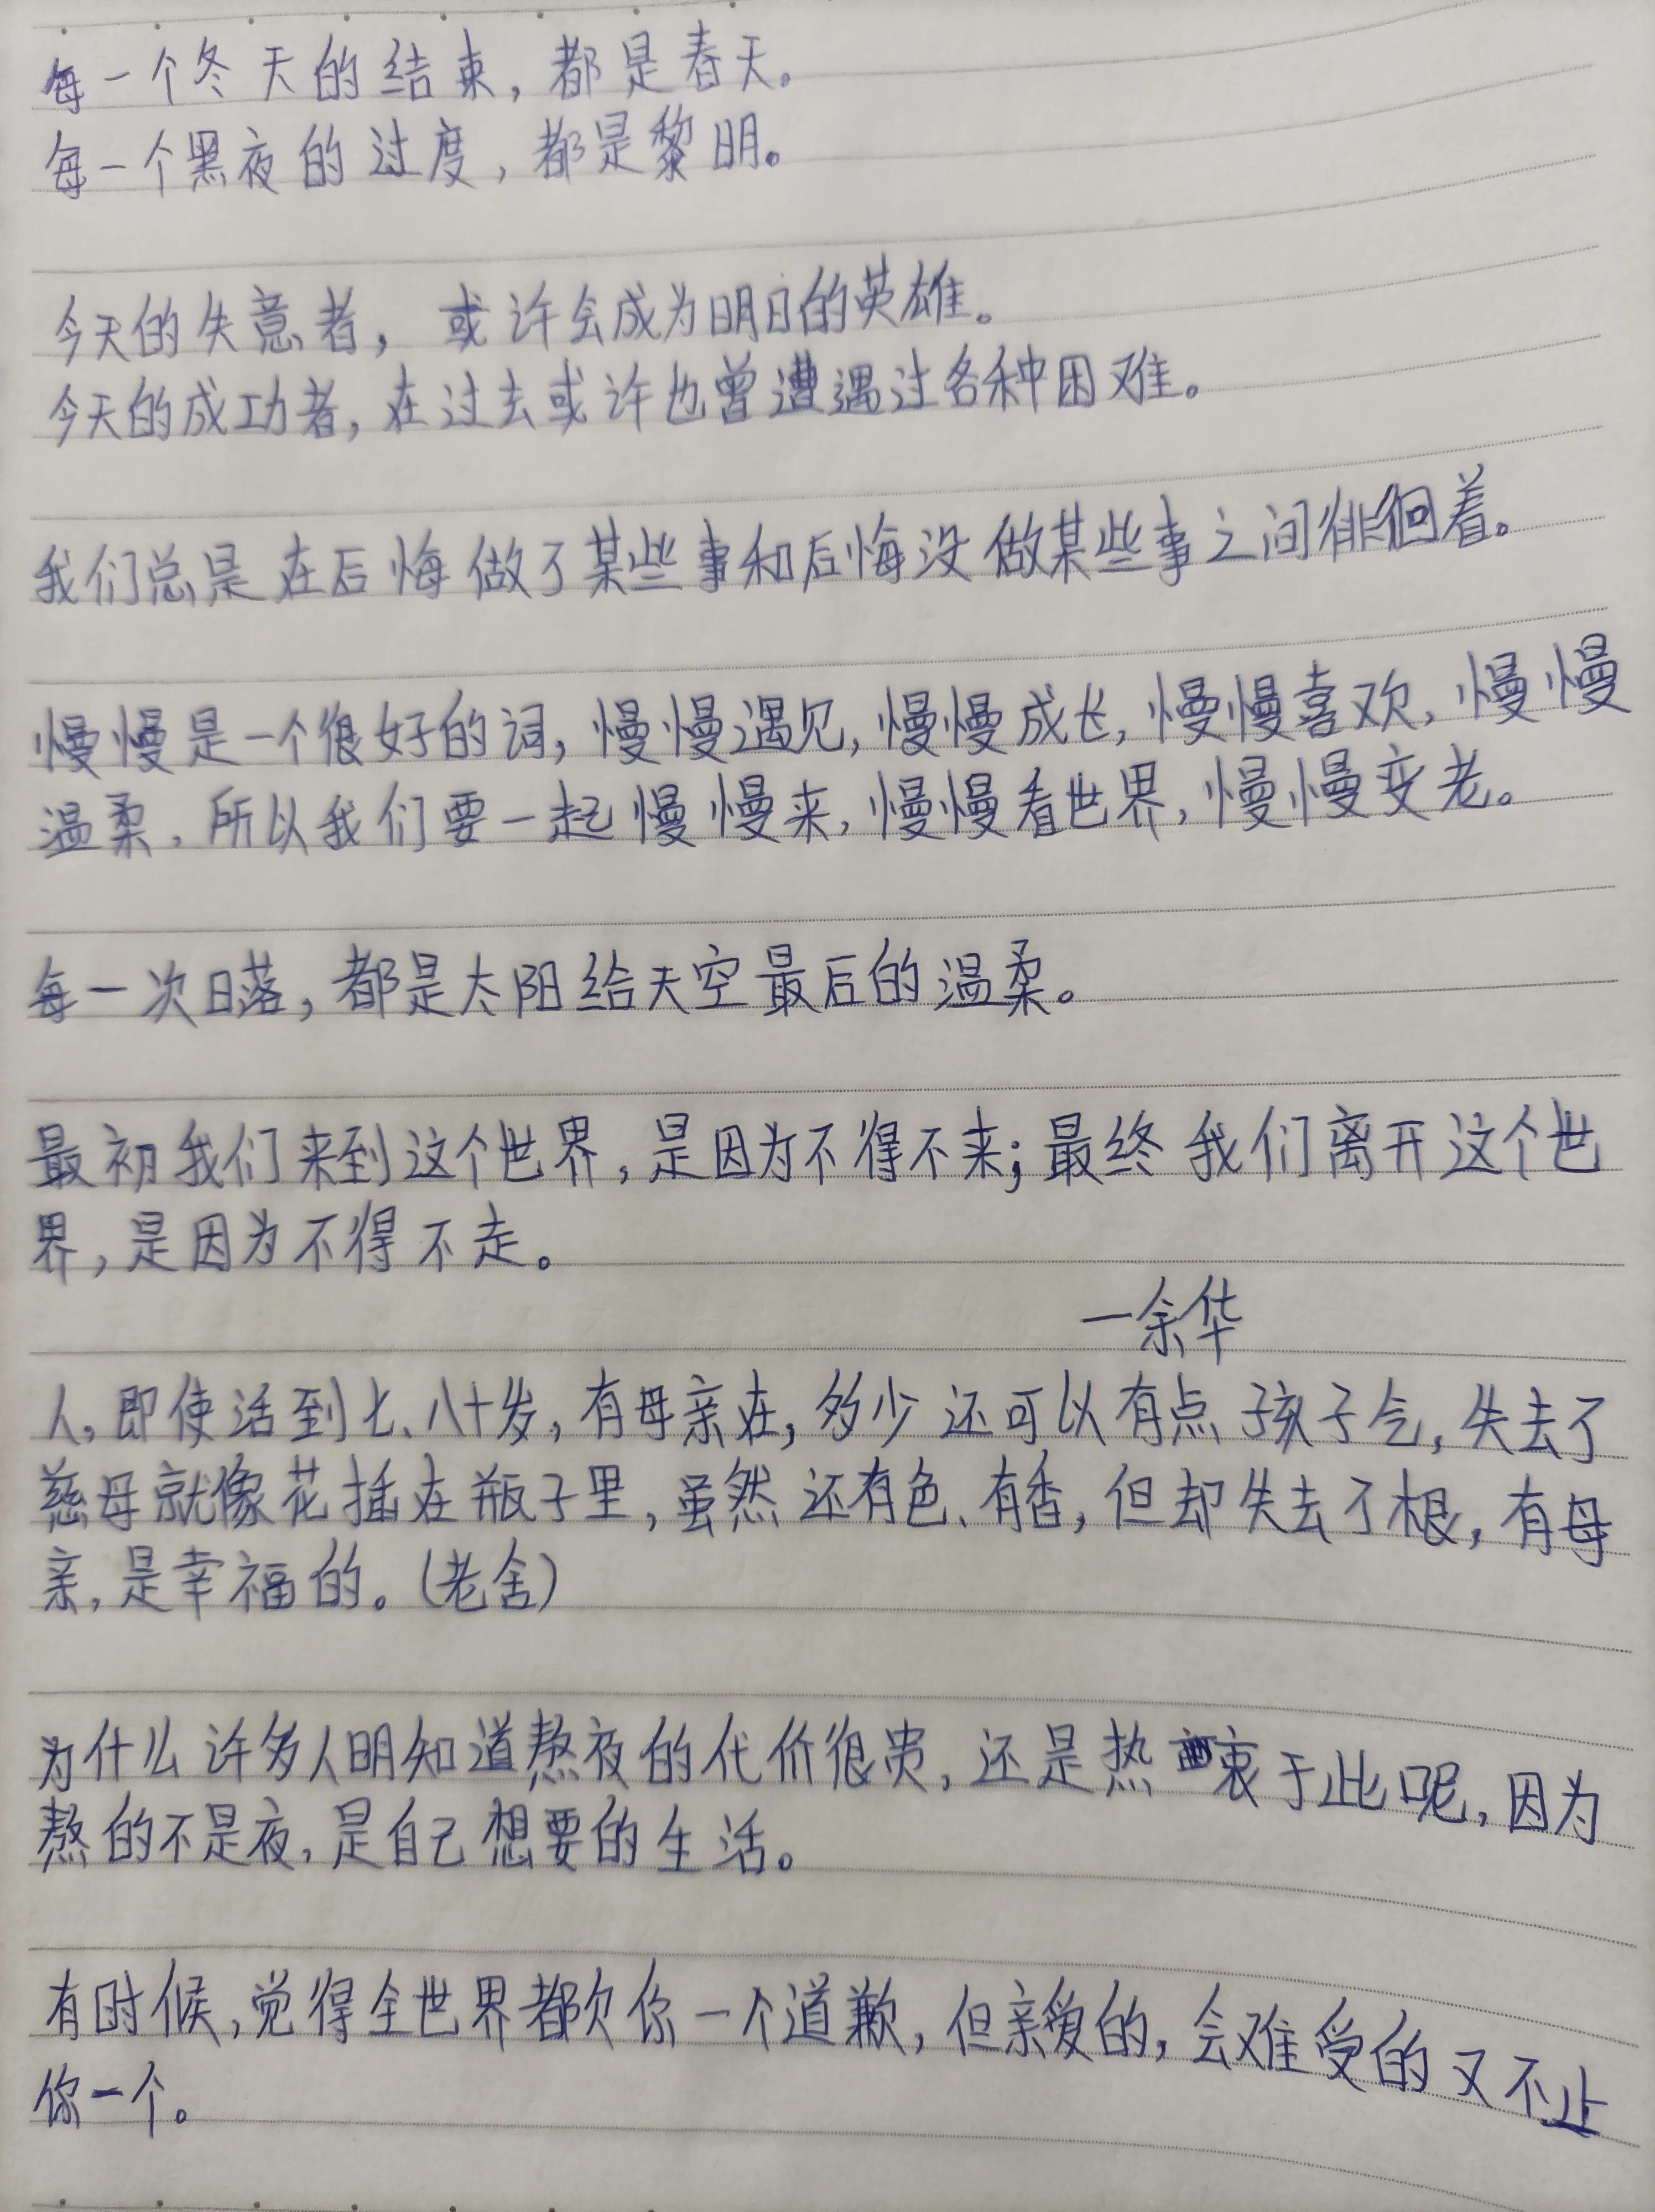 每一个冬天的结束，都是春天。
每一个黑夜的过度，都是黎明。
今天的失意者，或许会成为明日的英雄。
今天的成功者，在过去或许也曾遭遇过各种困难。
我们总是在后悔做了某些事和后悔没做某些事之间徘徊着。
慢慢是一个很好的词，慢慢遇见，慢慢成长，慢慢喜欢，慢慢
温柔，所以我们要一起慢慢来，慢慢看世界，慢慢变老。
每一次日落，都是太阳给天空最后的温柔。
最初我们来到这个世界，是因为不得不来；最终我们离开这个世
界，是因为不得不走。
—余华
人，即使活到七、八十岁，有母亲在，多少还可以有点孩子气，失去了
慈母就像花插在瓶子里，虽然还有色、有香，但却失去了根，有母
亲，是幸福的。（老舍）
为什么许多人明知道熬夜的代价很贵，还是热衷于此呢，因为
熬的不是夜，是自己想要的生活。
有时候，觉得全世界都欠你一个道歉，但亲爱的，会难受的又不止
你一个。